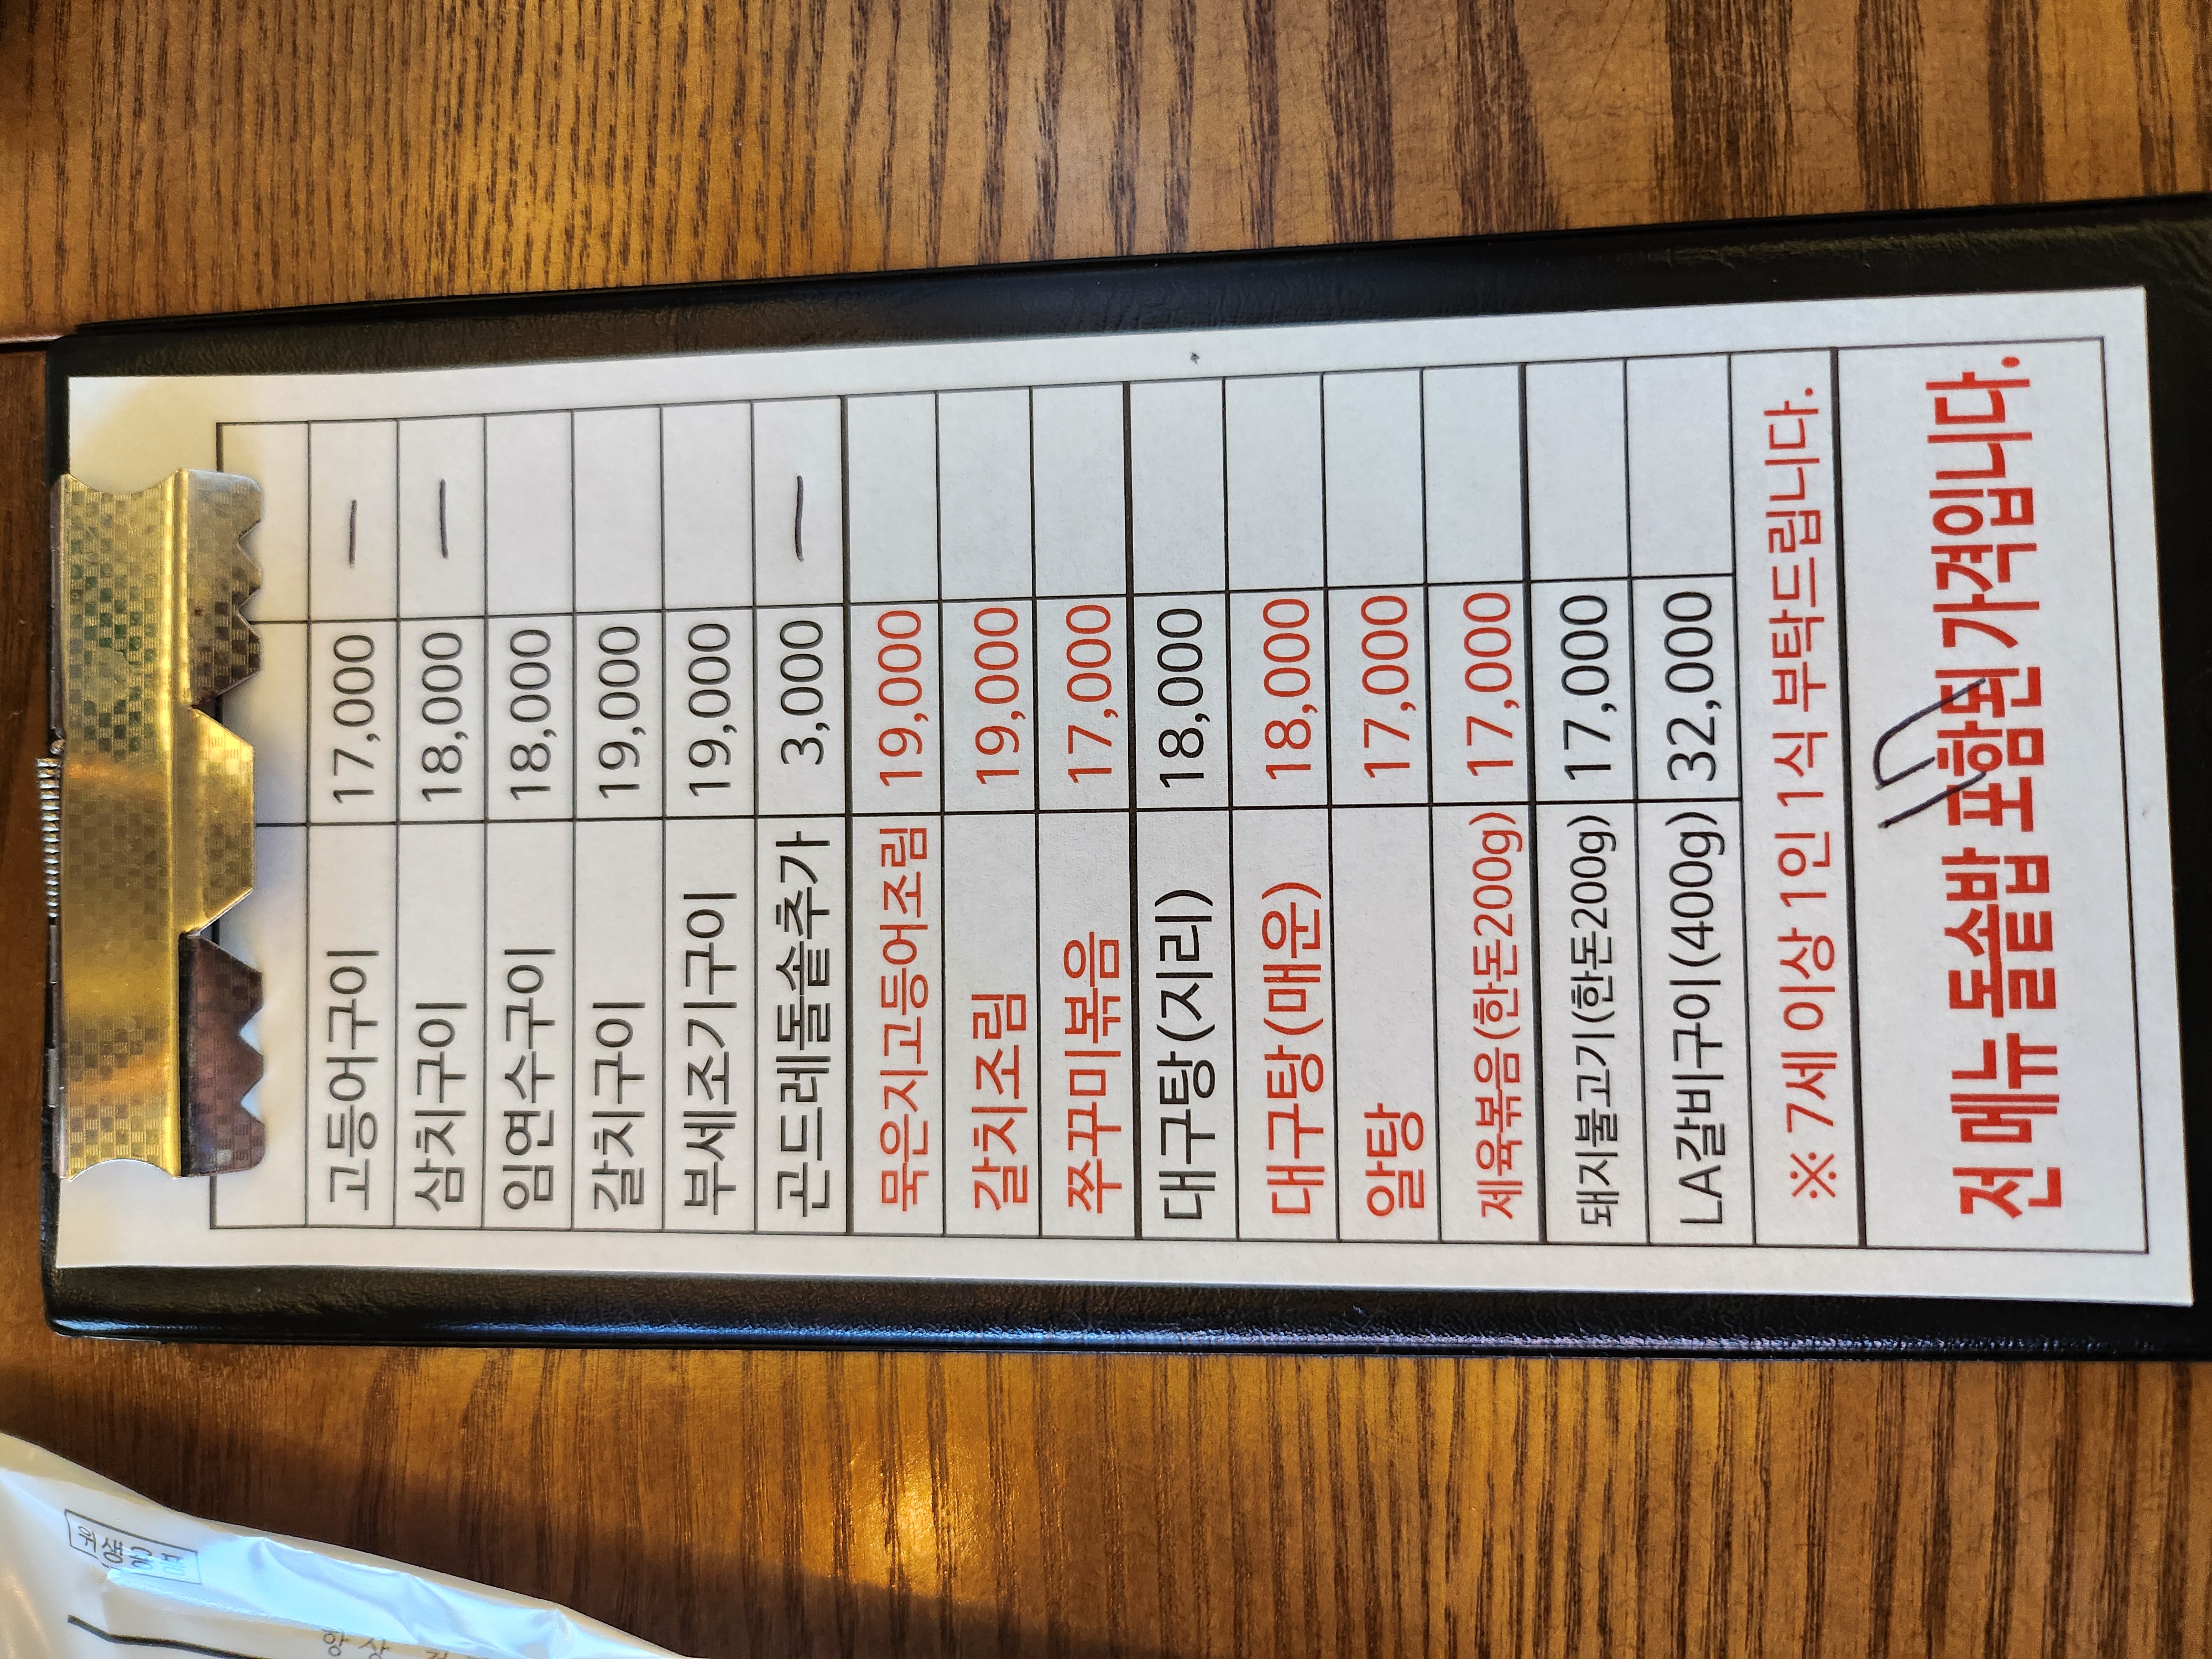 고등어구이 17,000 一
삼치구이 18,000 一
임연수구이 18,000
갈치구이 19,000
부세조기구이 19,000
곤드레돌솥추가 3,000 一
묵은지고등어조림 19,000
갈치조림 19,000
쭈꾸미볶음 17,000
대구탕(지리) 18,000
대구탕(매운) 18,000
알탕 17,000
제육볶음(한돈200g) 17,000
돼지불고기(한돈200g) 17,000
LA갈비구이(400g) 32,000
※ 7세 이상 1인 1식 부탁드립니다.
전 메뉴 돌솥밥 포함된 가격입니다.
위생용품